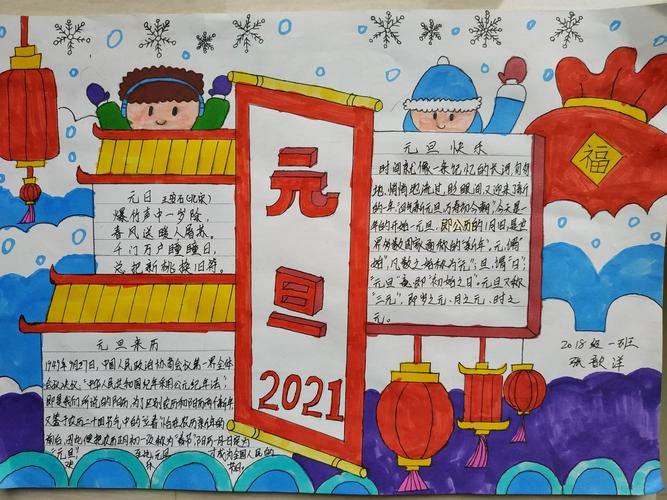 元日 王安石(北宋)
爆竹声中一岁除,
春风送暖入屠苏。
千门万户瞳瞳日,
总把新桃换旧符。
元旦来历
1949年9月27日,中国人民政治协商会议第一界全体
会议决议:"中华人民共和国纪年采用公元纪年法",
即是我们所说的阳历,为了区别农历和阳历两个新年,
又鉴于农历二十四节气中的"立春"恰在农历新年的
前后,因此便把农历正月初一改称为"春节",阳历一月一日定为
"元旦"
元旦
才成为全国人民的
节日。
元旦
2021
元旦快乐
时间就像一条记忆的长河,匆匆
地,悄悄地流过,眨眼间又迎来了新
的一年
今天是一
年的开始—元旦,即公历的1月1日,是世
界多数国家通称的"新年"。元,谓
"始",凡数之始称为"元";旦,谓"日";
"元旦"意即"初始之日"。元旦又称
"三元",即岁之元、月之元、时之
元。
福
2018级一班
张歆洋